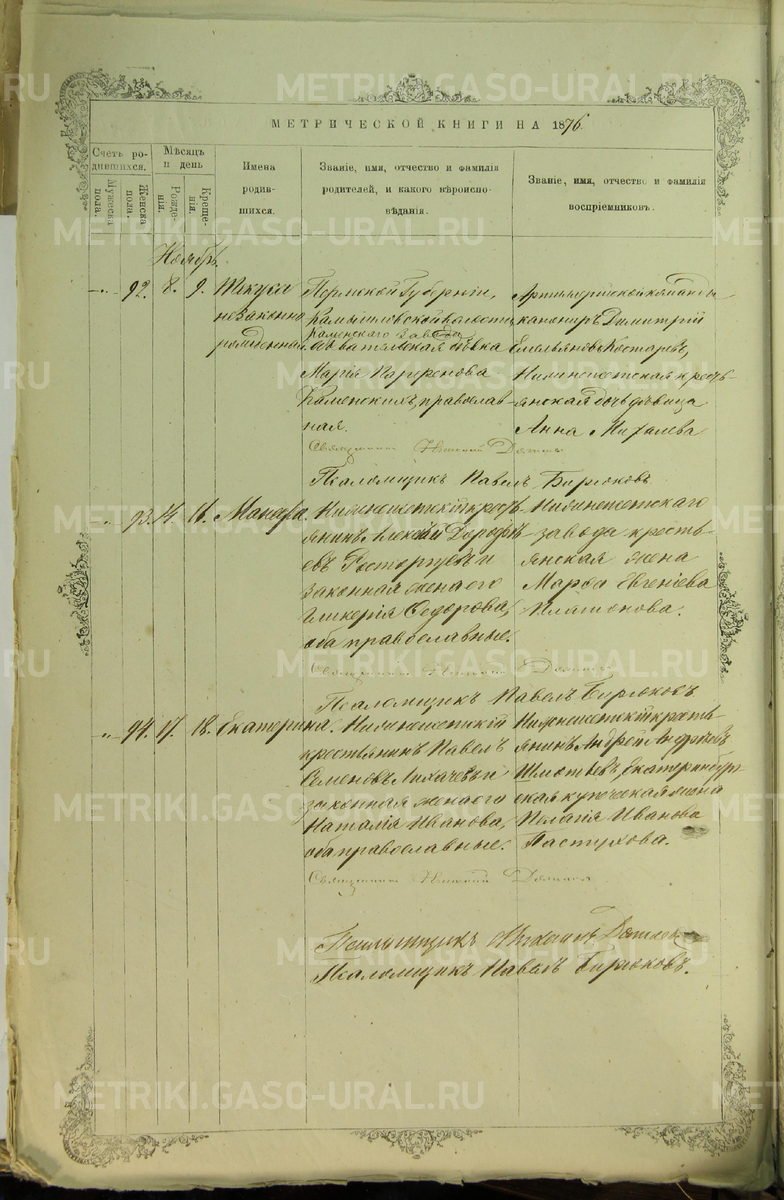 МЕТРИЧЕСКОЙ КНИГИ НА 1876
Счетъ родившихся.
Мужеска пола.
Женска пола.
Мѣсяцъ и день
Рожденія.
Крещенія.
Имена родившихся.
Званіе, имя, отчество и фамилія родителей, и какого вѣроисповѣданія.
Званіе, имя, отчество и фамилія воспріемниковъ.
Ноябрь.
92. 8. 9.
незаконно
рожденная
Пермской Губерніи,
Камышловской
Каменскаго завода
дѣвка
Марія Парфенова
Каменскихъ, православ-
ная.
Артиллерійской команды
канониръ Димитрій
Емельяновъ Костаревъ,
Нижнеисетская кресть-
янская дочь дѣвица
Анна Михалева
Священникъ
Псаломщикъ Павелъ Бирюковъ
93. 14. 16.
Нижнеисетскій кресть-
янинъ Алексѣй Дорофѣ-
евъ Расторгуевъ и
законная жена его
Гликерія Федорова,
оба православные.
Нижнеисетскаго
завода кресть-
янская жена
Марфа Евгеніева
Платонова.
Священникъ
Псаломщикъ Павелъ Бирюковъ
94. 17. 18. Екатерина.
Нижнеисетскій
крестьянинъ Павелъ
Семеновъ Лихачевъ и
законная жена его
Наталія Иванова,
оба православные.
Нижнеисетскій кресть-
янинъ Андрей Андреевъ
Екатеринбург-
ская купеческая жена
Пелагія Иванова
Пастухова.
Священникъ
Псаломщикъ
Псаломщикъ Павелъ Бирюковъ.
METRIKI.GASO-URAL.RU